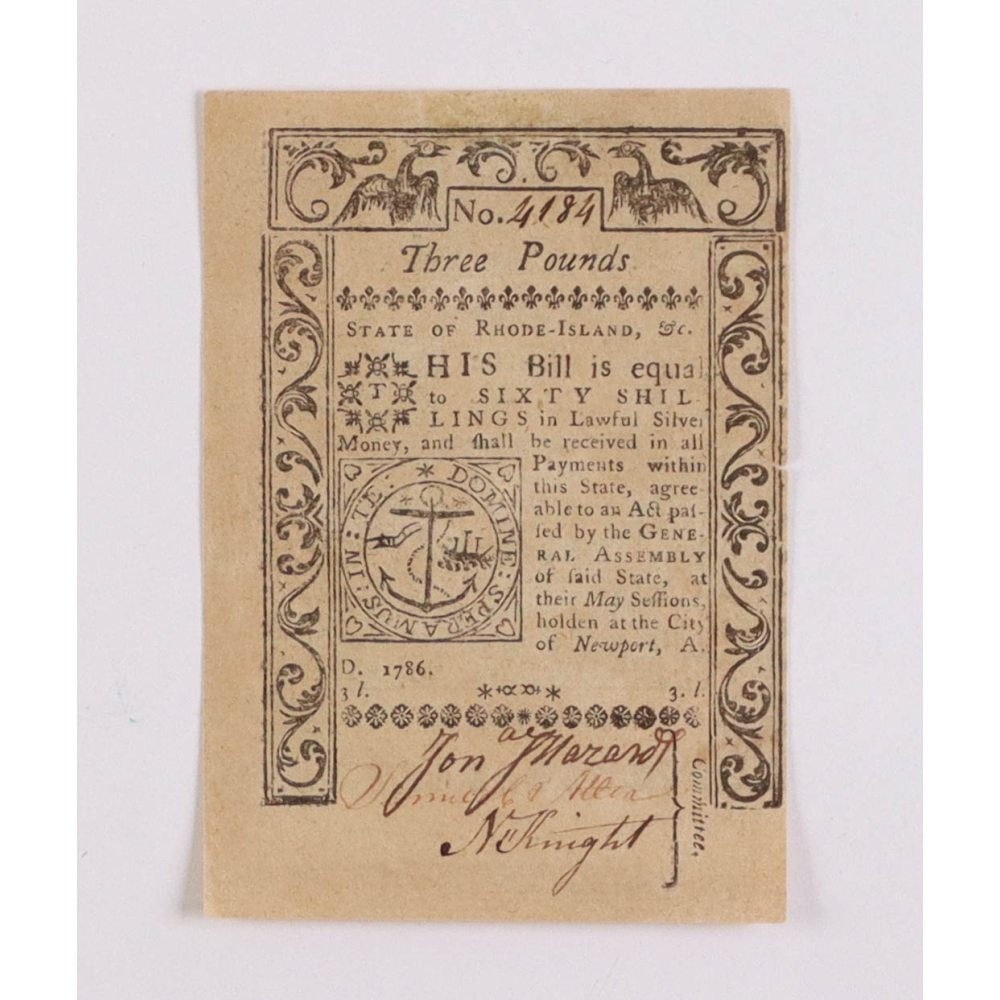 No. 4184
Three Pounds
STATE OF RHODE-ISLAND, &c.
THIS Bill is equal
to SIXTY SHIL-
LINGS in Lawful Silver
Money, and shall be received in all
Payments within
this State, agree-
able to an Act pas-
sed by the GENE-
RAL ASSEMBLY
of said State, at
their May Sessions,
holden at the City
of Newport, A.
D. 1786.
3 l. 3. l.
IN: TE: DOMINE: SPERAMUS:
Jon a J Hazard
Allen
N Knight
Committee.